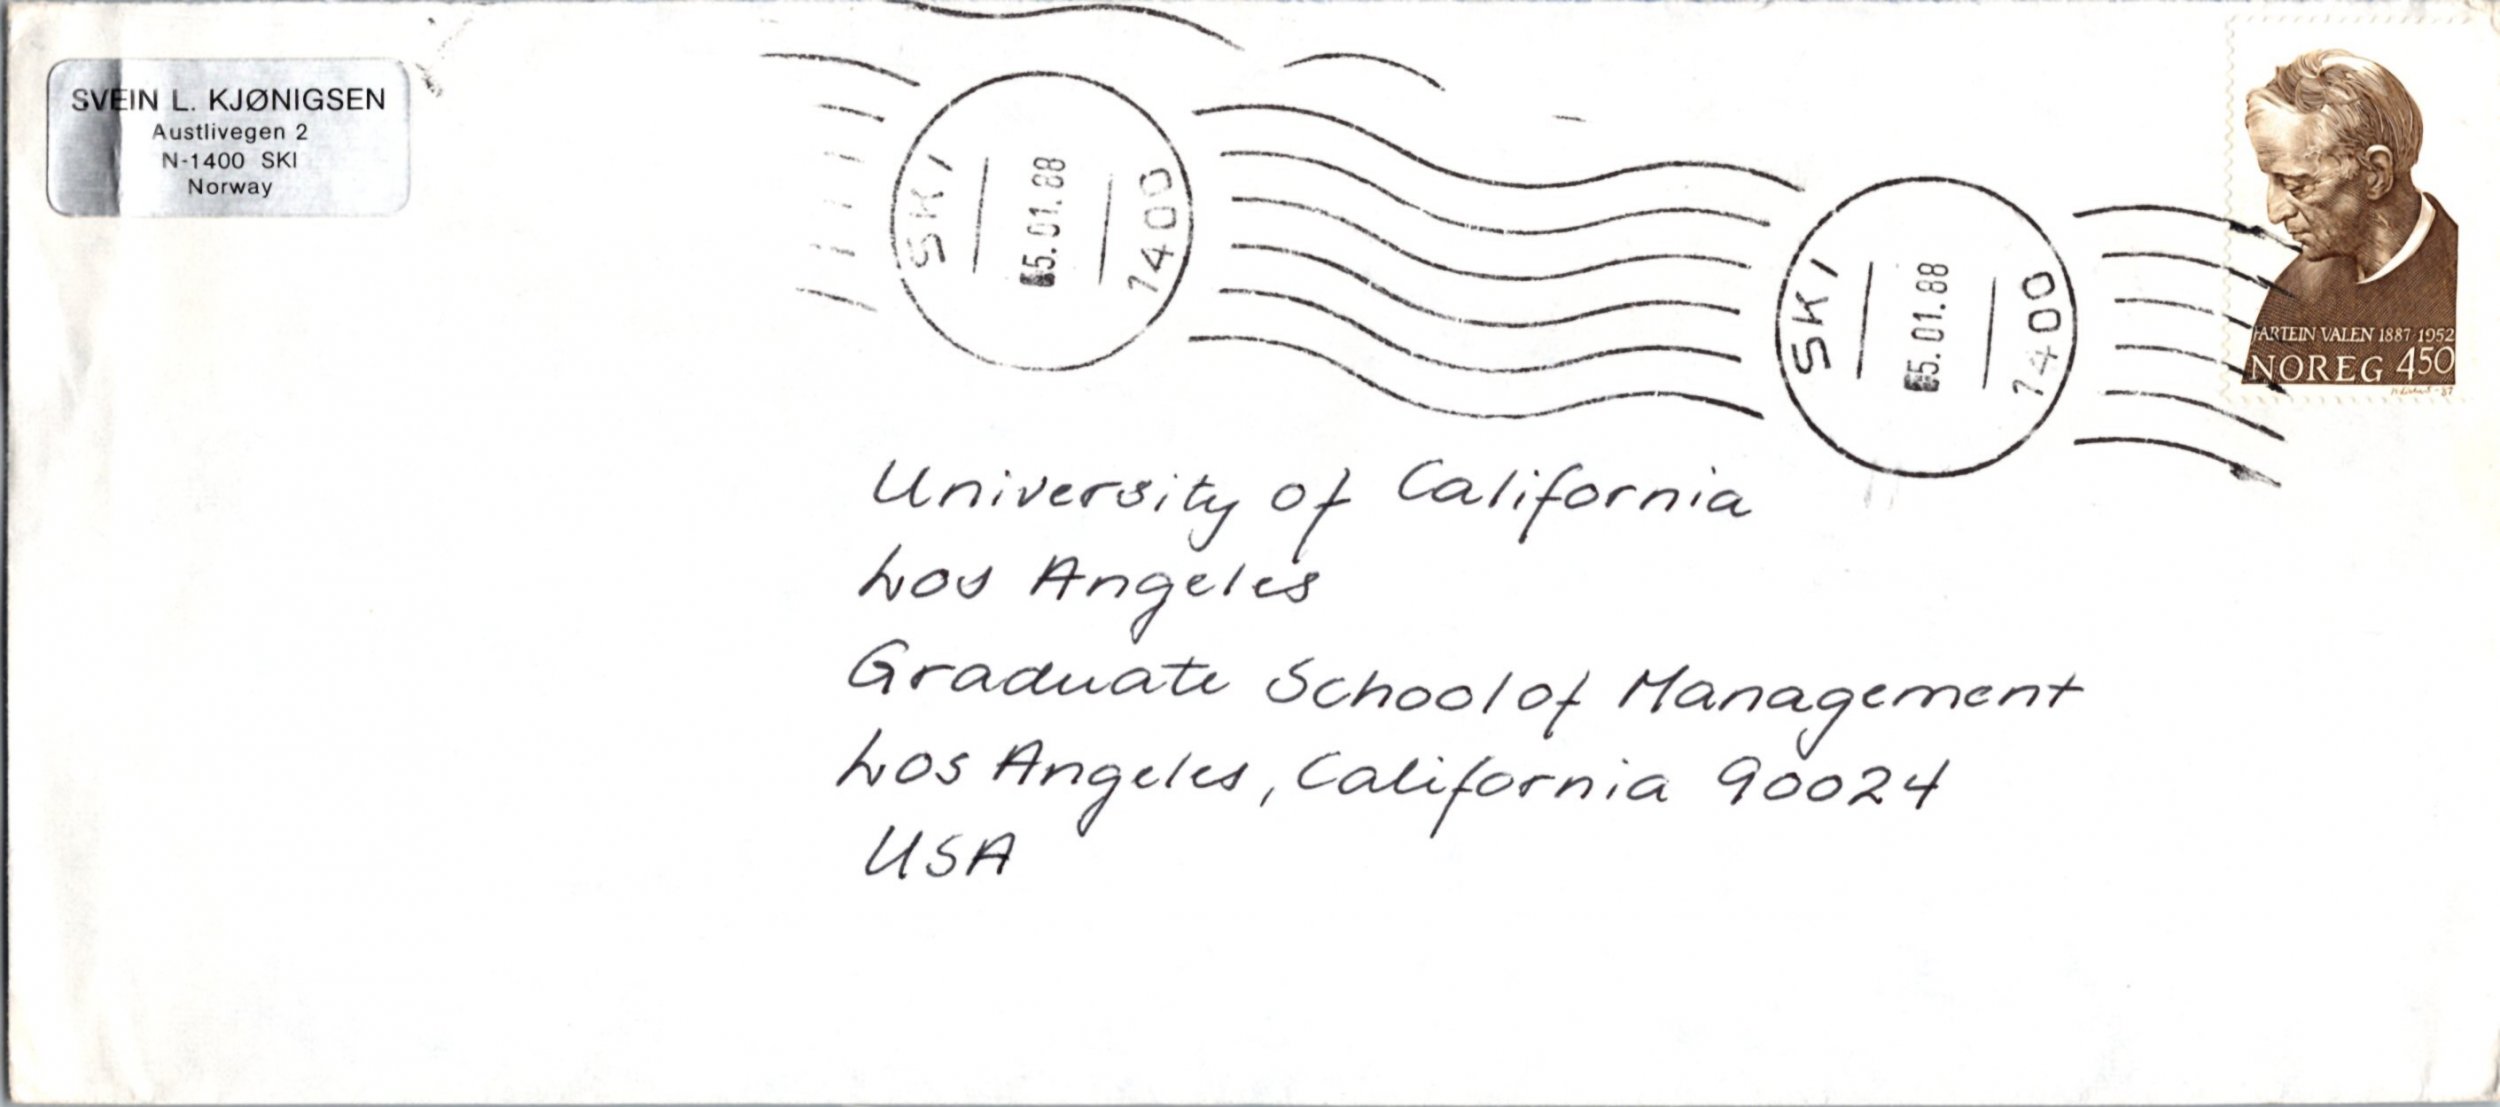 SVEIN L. KJØNIGSEN
Austlivegen 2
N-1400 SKI
Norway
SKI
5.01.88
1400
SKI
5.01.88
1400
FARTEIN VALEN 1887-1952
NOREG 450
University of California
Los Angeles
Graduate School of Management
Los Angeles, California 90024
USA